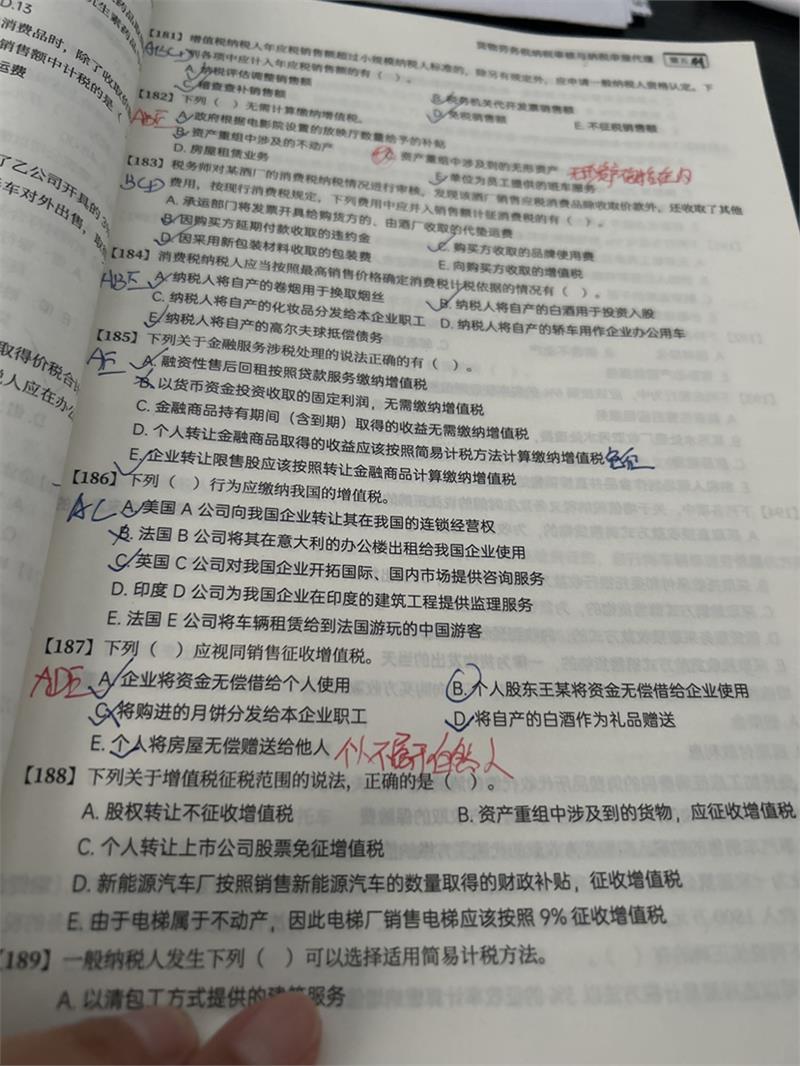 D.13
消费品时，除了收取的
销售额中计税的是（
运费
了乙公司开具的3%
车对外出售，取
取得价税合
人应在办公
货物劳务税纳税审核与纳税申报代理 第五
【181】增值税纳税人年应税销售额超过小规模纳税人标准的，除另有规定外，应申请一般纳税人资格认定。下
列各项中应计入年应税销售额的有（ ）。
ABCD
A. 纳税评估调整销售额
B. 税务机关代开发票销售额
C. 稽查查补销售额
D. 免税销售额
E. 不征税销售额
【182】下列（ ）无需计算缴纳增值税。
ABE
A. 政府根据电影院设置的放映厅数量给予的补贴
B. 资产重组中涉及的不动产
C. 资产重组中涉及到的无形资产
D. 房屋租赁业务
E. 单位为员工提供的班车服务
【183】税务师对某酒厂的消费税纳税情况进行审核，发现该酒厂销售应税消费品除收取价款外，还收取了其他
BCD
费用，按现行消费税规定，下列费用中应并入销售额计征消费税的有（ ）。
A. 承运部门将发票开具给购货方的、由酒厂收取的代垫运费
B. 因购买方延期付款收取的违约金
C. 购买方收取的品牌使用费
D. 因采用新包装材料收取的包装费
E. 向购买方收取的增值税
【184】消费税纳税人应当按照最高销售价格确定消费税计税依据的情况有（ ）。
ABE
A. 纳税人将自产的卷烟用于换取烟丝
B. 纳税人将自产的白酒用于投资入股
C. 纳税人将自产的化妆品分发给本企业职工
D. 纳税人将自产的轿车用作企业办公用车
E. 纳税人将自产的高尔夫球抵偿债务
【185】下列关于金融服务涉税处理的说法正确的有（ ）。
AE
A. 融资性售后回租按照贷款服务缴纳增值税
B. 以货币资金投资收取的固定利润，无需缴纳增值税
C. 金融商品持有期间（含到期）取得的收益无需缴纳增值税
D. 个人转让金融商品取得的收益应该按照简易计税方法计算缴纳增值税
E. 企业转让限售股应该按照转让金融商品计算缴纳增值税
【186】下列（ ）行为应缴纳我国的增值税。
AC
A. 美国 A 公司向我国企业转让其在我国的连锁经营权
B. 法国 B 公司将其在意大利的办公楼出租给我国企业使用
C. 英国 C 公司对我国企业开拓国际、国内市场提供咨询服务
D. 印度 D 公司为我国企业在印度的建筑工程提供监理服务
E. 法国 E 公司将车辆租赁给到法国游玩的中国游客
【187】下列（ ）应视同销售征收增值税。
ADE
A. 企业将资金无偿借给个人使用
B. 个人股东王某将资金无偿借给企业使用
C. 将购进的月饼分发给本企业职工
D. 将自产的白酒作为礼品赠送
E. 个人将房屋无偿赠送给他人
个人不属于自然人
【188】下列关于增值税征税范围的说法，正确的是（ ）。
A. 股权转让不征收增值税
B. 资产重组中涉及到的货物，应征收增值税
C. 个人转让上市公司股票免征增值税
D. 新能源汽车厂按照销售新能源汽车的数量取得的财政补贴，征收增值税
E. 由于电梯属于不动产，因此电梯厂销售电梯应该按照 9% 征收增值税
【189】一般纳税人发生下列（ ）可以选择适用简易计税方法。
A. 以清包工方式提供的建筑服务